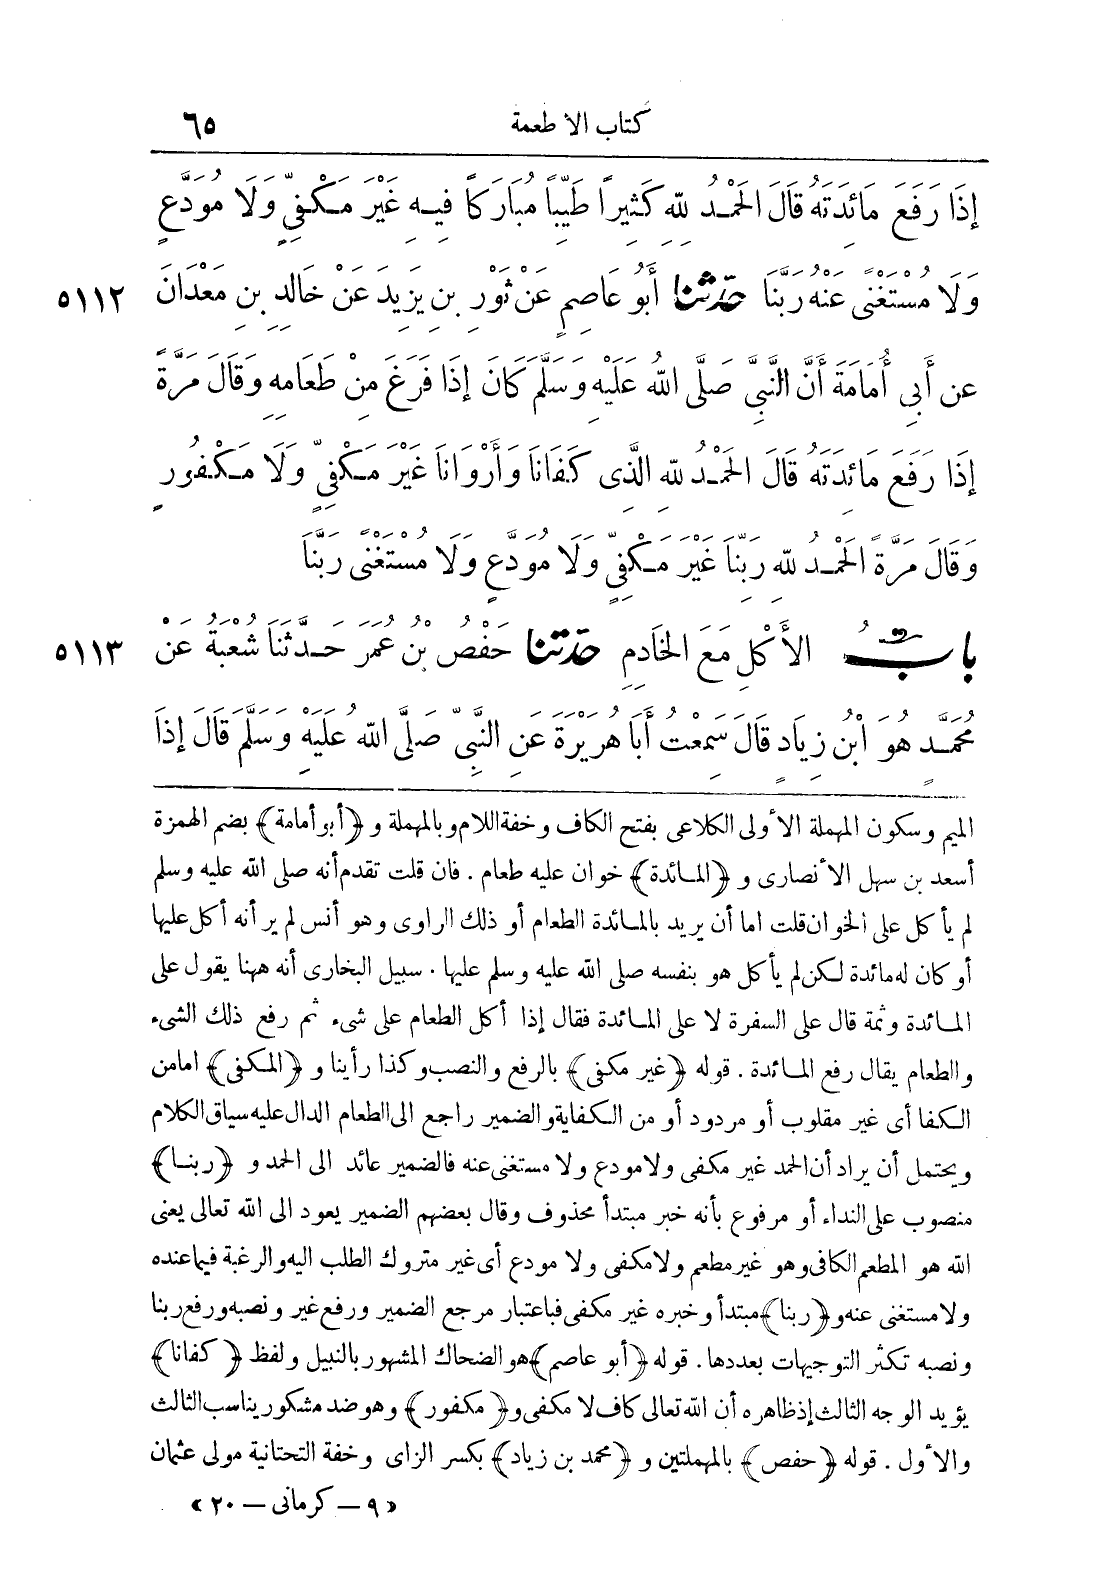 كتاب الأطعمة ٦٥
إِذَا رَفَعَ مَائِدَتَهُ قَالَ الْحَمْدُ لِلَّهِ كَثِيرًا طَيِّبًا مُبَارَكًا فِيهِ غَيْرَ مَكْفِيٍّ وَلَا مُوَدَّعٍ
وَلَا مُسْتَغْنًى عَنْهُ رَبَّنَا حَدَّثَنَا أَبُو عَاصِمٍ عَنْ ثَوْرِ بْنِ يَزِيدَ عَنْ خَالِدِ بْنِ مَعْدَانَ ٥١١٢
عَنْ أَبِي أُمَامَةَ أَنَّ النَّبِيَّ صَلَّى اللهُ عَلَيْهِ وَسَلَّمَ كَانَ إِذَا فَرَغَ مِنْ طَعَامِهِ وَقَالَ مَرَّةً
إِذَا رَفَعَ مَائِدَتَهُ قَالَ الْحَمْدُ لِلَّهِ الَّذِي كَفَانَا وَأَرْوَانَا غَيْرَ مَكْفِيٍّ وَلَا مَكْفُورٍ
وَقَالَ مَرَّةً الْحَمْدُ لِلَّهِ رَبِّنَا غَيْرَ مَكْفِيٍّ وَلَا مُوَدَّعٍ وَلَا مُسْتَغْنًى رَبَّنَا
بَابُ الْأَكْلِ مَعَ الْخَادِمِ حَدَّثَنَا حَفْصُ بْنُ عُمَرَ حَدَّثَنَا شُعْبَةُ عَنْ ٥١١٣
مُحَمَّدٍ هُوَ ابْنُ زِيَادٍ قَالَ سَمِعْتُ أَبَا هُرَيْرَةَ عَنِ النَّبِيِّ صَلَّى اللهُ عَلَيْهِ وَسَلَّمَ قَالَ إِذَا
الميم وسكون المهملة الأولى الكلاعى بفتح الكاف وخفة اللام وبالمهملة و ﴿أبو أمامة﴾ بضم الهمزة
أسعد بن سهل الأنصارى و ﴿المائدة﴾ خوان عليه طعام . فان قلت تقدم أنه صلى الله عليه وسلم
لم يأكل على الخوان قلت اما أن يريد بالمائدة الطعام أو ذلك الراوى وهو أنس لم ير أنه أكل عليها
أو كان له مائدة لكن لم يأكل هو بنفسه صلى الله عليه وسلم عليها . سبيل البخارى أنه ههنا يقول على
المائدة وثمة قال على السفرة لا على المائدة فقال إذا أكل الطعام على شىء ثم رفع ذلك الشىء
والطعام يقال رفع المائدة . قوله ﴿غير مكفى﴾ بالرفع والنصب وكذا رأينا و ﴿المكفى﴾ اما من
الكفا أى غير مقلوب أو مردود أو من الكفاية والضمير راجع الى الطعام الدال عليه سياق الكلام
ويحتمل أن يراد أن الحمد غير مكفى ولا مودع ولا مستغنى عنه فالضمير عائد الى الحمد و ﴿ربنا﴾
منصوب على النداء أو مرفوع بأنه خبر مبتدأ محذوف وقال بعضهم الضمير يعود الى الله تعالى يعنى
الله هو المطعم الكافى وهو غير مطعم ولا مكفى ولا مودع أى غير متروك الطلب اليه والرغبة فيما عنده
ولا مستغنى عنه و ﴿ربنا﴾ مبتدأ وخبره غير مكفى فباعتبار مرجع الضمير ورفع غير ونصبه ورفع ربنا
ونصبه تكثر التوجيهات بعددها. قوله ﴿أبو عاصم﴾ هو الضحاك المشهور بالنبيل ولفظ ﴿كفانا﴾
يؤيد الوجه الثالث إذ ظاهره أن الله تعالى كاف لا مكفى و ﴿مكفور﴾ وهو ضد مشكور يناسب الثالث
والأول . قوله ﴿حفص﴾ بالمهملتين و ﴿محمد بن زياد﴾ بكسر الزاى وخفة التحتانية مولى عثمان
« ٩ – كرمانى – ٢٠ »